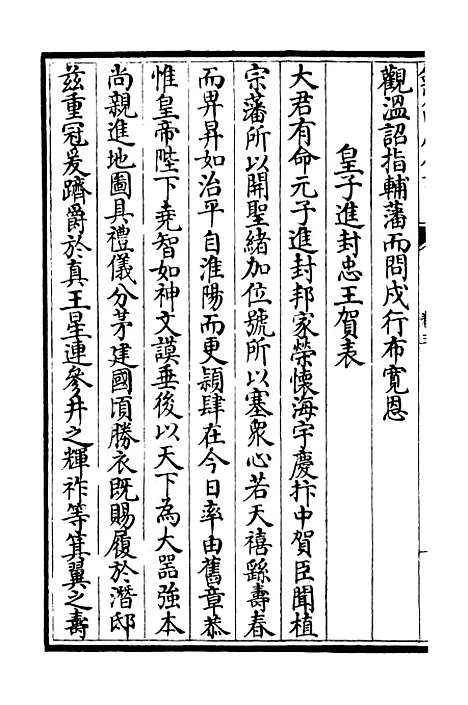 觀溫詔指輔藩而問戍行布寬恩
皇子進封忠王賀表
大君有命元子進封邦家榮懷海宇慶抃中賀臣聞植
宗藩所以開聖緒加位號所以塞衆心若天禧繇壽春
而畀昇如治平自淮陽而更潁肆在今日率由舊章恭
惟皇帝陛下堯智如神文謨垂後以天下為大噐強本
尚親進地圖具禮儀分茅建國頃勝衣既賜履於潛邸
兹重冠爰躋爵於真王星連參井之輝祚等箕翼之壽